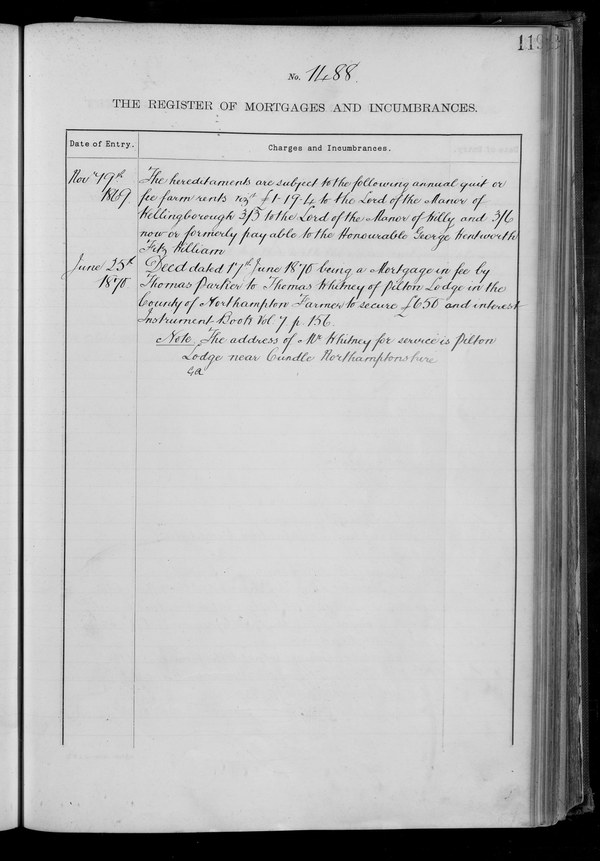 119
No. 1488.
THE REGISTER OF MORTGAGES AND INCUMBRANCES.
Date of Entry.
Charges and Incumbrances.
Nov 19th 1869
The hereditaments are subject to the following annual quit or
fee farm rents vizt £1-19-4 to the Lord of the Manor of
Wellingborough 3/5 to the Lord of the Manor of Hilly and 3/6
now or formerly payable to the Honourable George Wentworth
Fitz William
June 25th 1870
Deed dated 17th June 1870 being a Mortgage in fee by
Thomas Parker to Thomas Whitney of Pilton Lodge in the
County of Northampton Farmer to secure £650 and interest
Instrument Book Vol. 7 p. 156.
Note The address of Mr Whitney for service is Pilton
Lodge near Oundle Northamptonshire